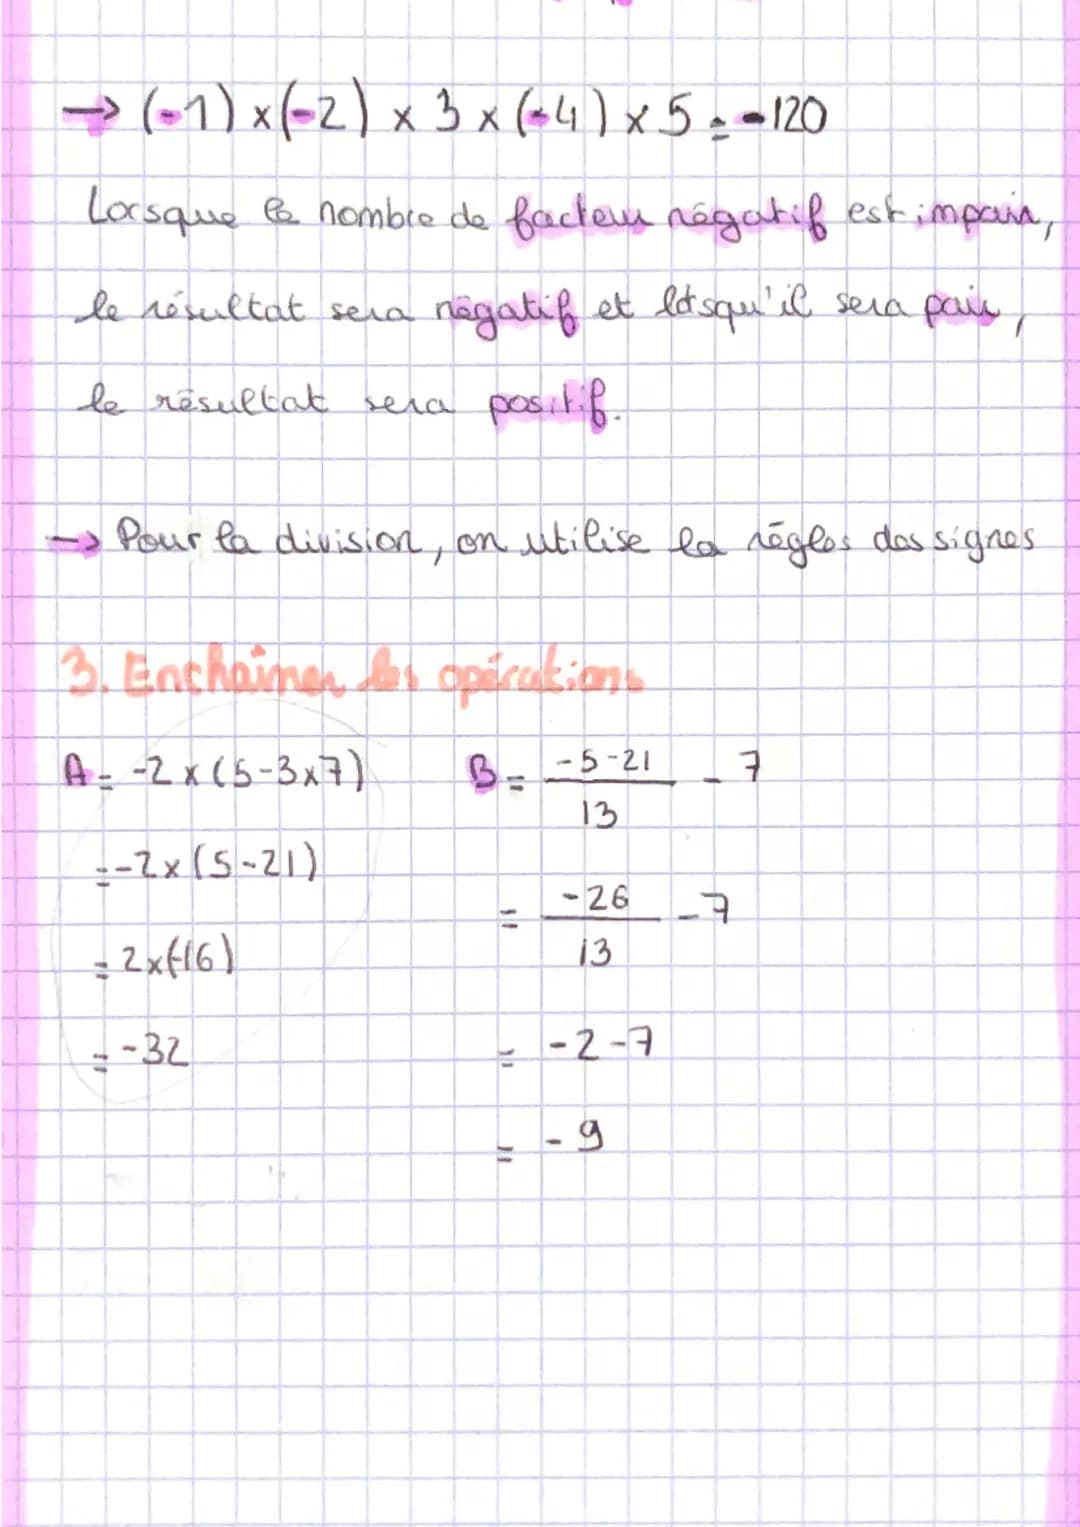 → (-1) × (-2) × 3 × (-4) × 5 = -120
Lorsque le nombre de facteur négatif est impair,
le résultat sera négatif et lorsqu'il sera pair,
le résultat sera positif.
→ Pour la division, on utilise la règles des signes
3. Enchaîner les opérations
A = -2 × (5-3×7)
= -2 × (5-21)
= 2×(-16)
= -32
B = \frac{-5-21}{13} - 7
= \frac{-26}{13} - 7
= -2-7
= -9